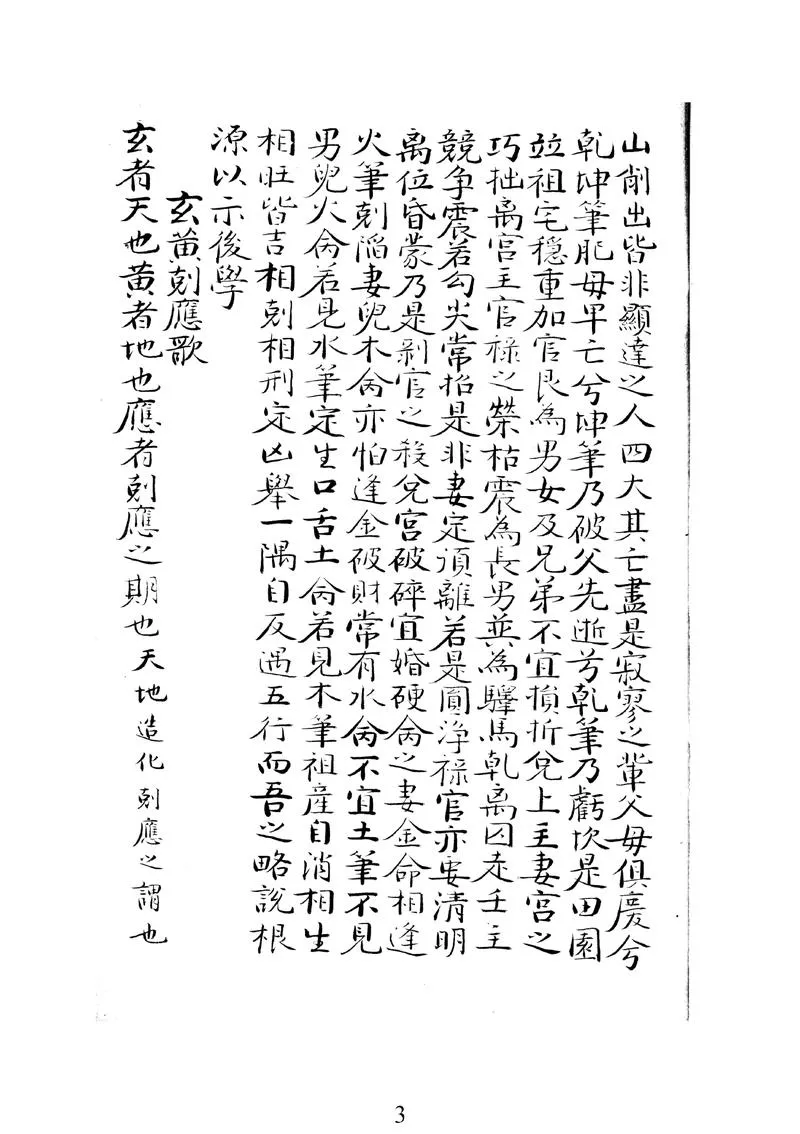 山削出皆非顯達之人四大其亡盡是寂寥之輩父母俱慶兮
乹坤筆肥母早亡兮坤筆乃破父先逝兮乹筆乃虧坎是田園
竝祖宅穩重加官艮為男女及兄弟不宜損折兌上主妻宮之
巧拙离宮主官祿之榮枯震為長男巽為驛馬乹离囚走壬主
競争震若勾尖常招是非妻定須離若是圓淨祿官亦要清明
离位昏蒙乃是剥官之殺兌宮破碎宜婚硬命之妻金命相逢
火筆剋陷妻兒木命亦怕逢金破財常有水命不宜土筆不見
男兒火命若見水筆定生口舌土命若見木筆祖產自消相生
相旺皆吉相剋相刑定凶舉一隅自反遇五行而吾之略說根
源以示後學
玄黄剋應歌
玄者天也黄者地也應者剋應之期也天地造化剋應之謂也
3